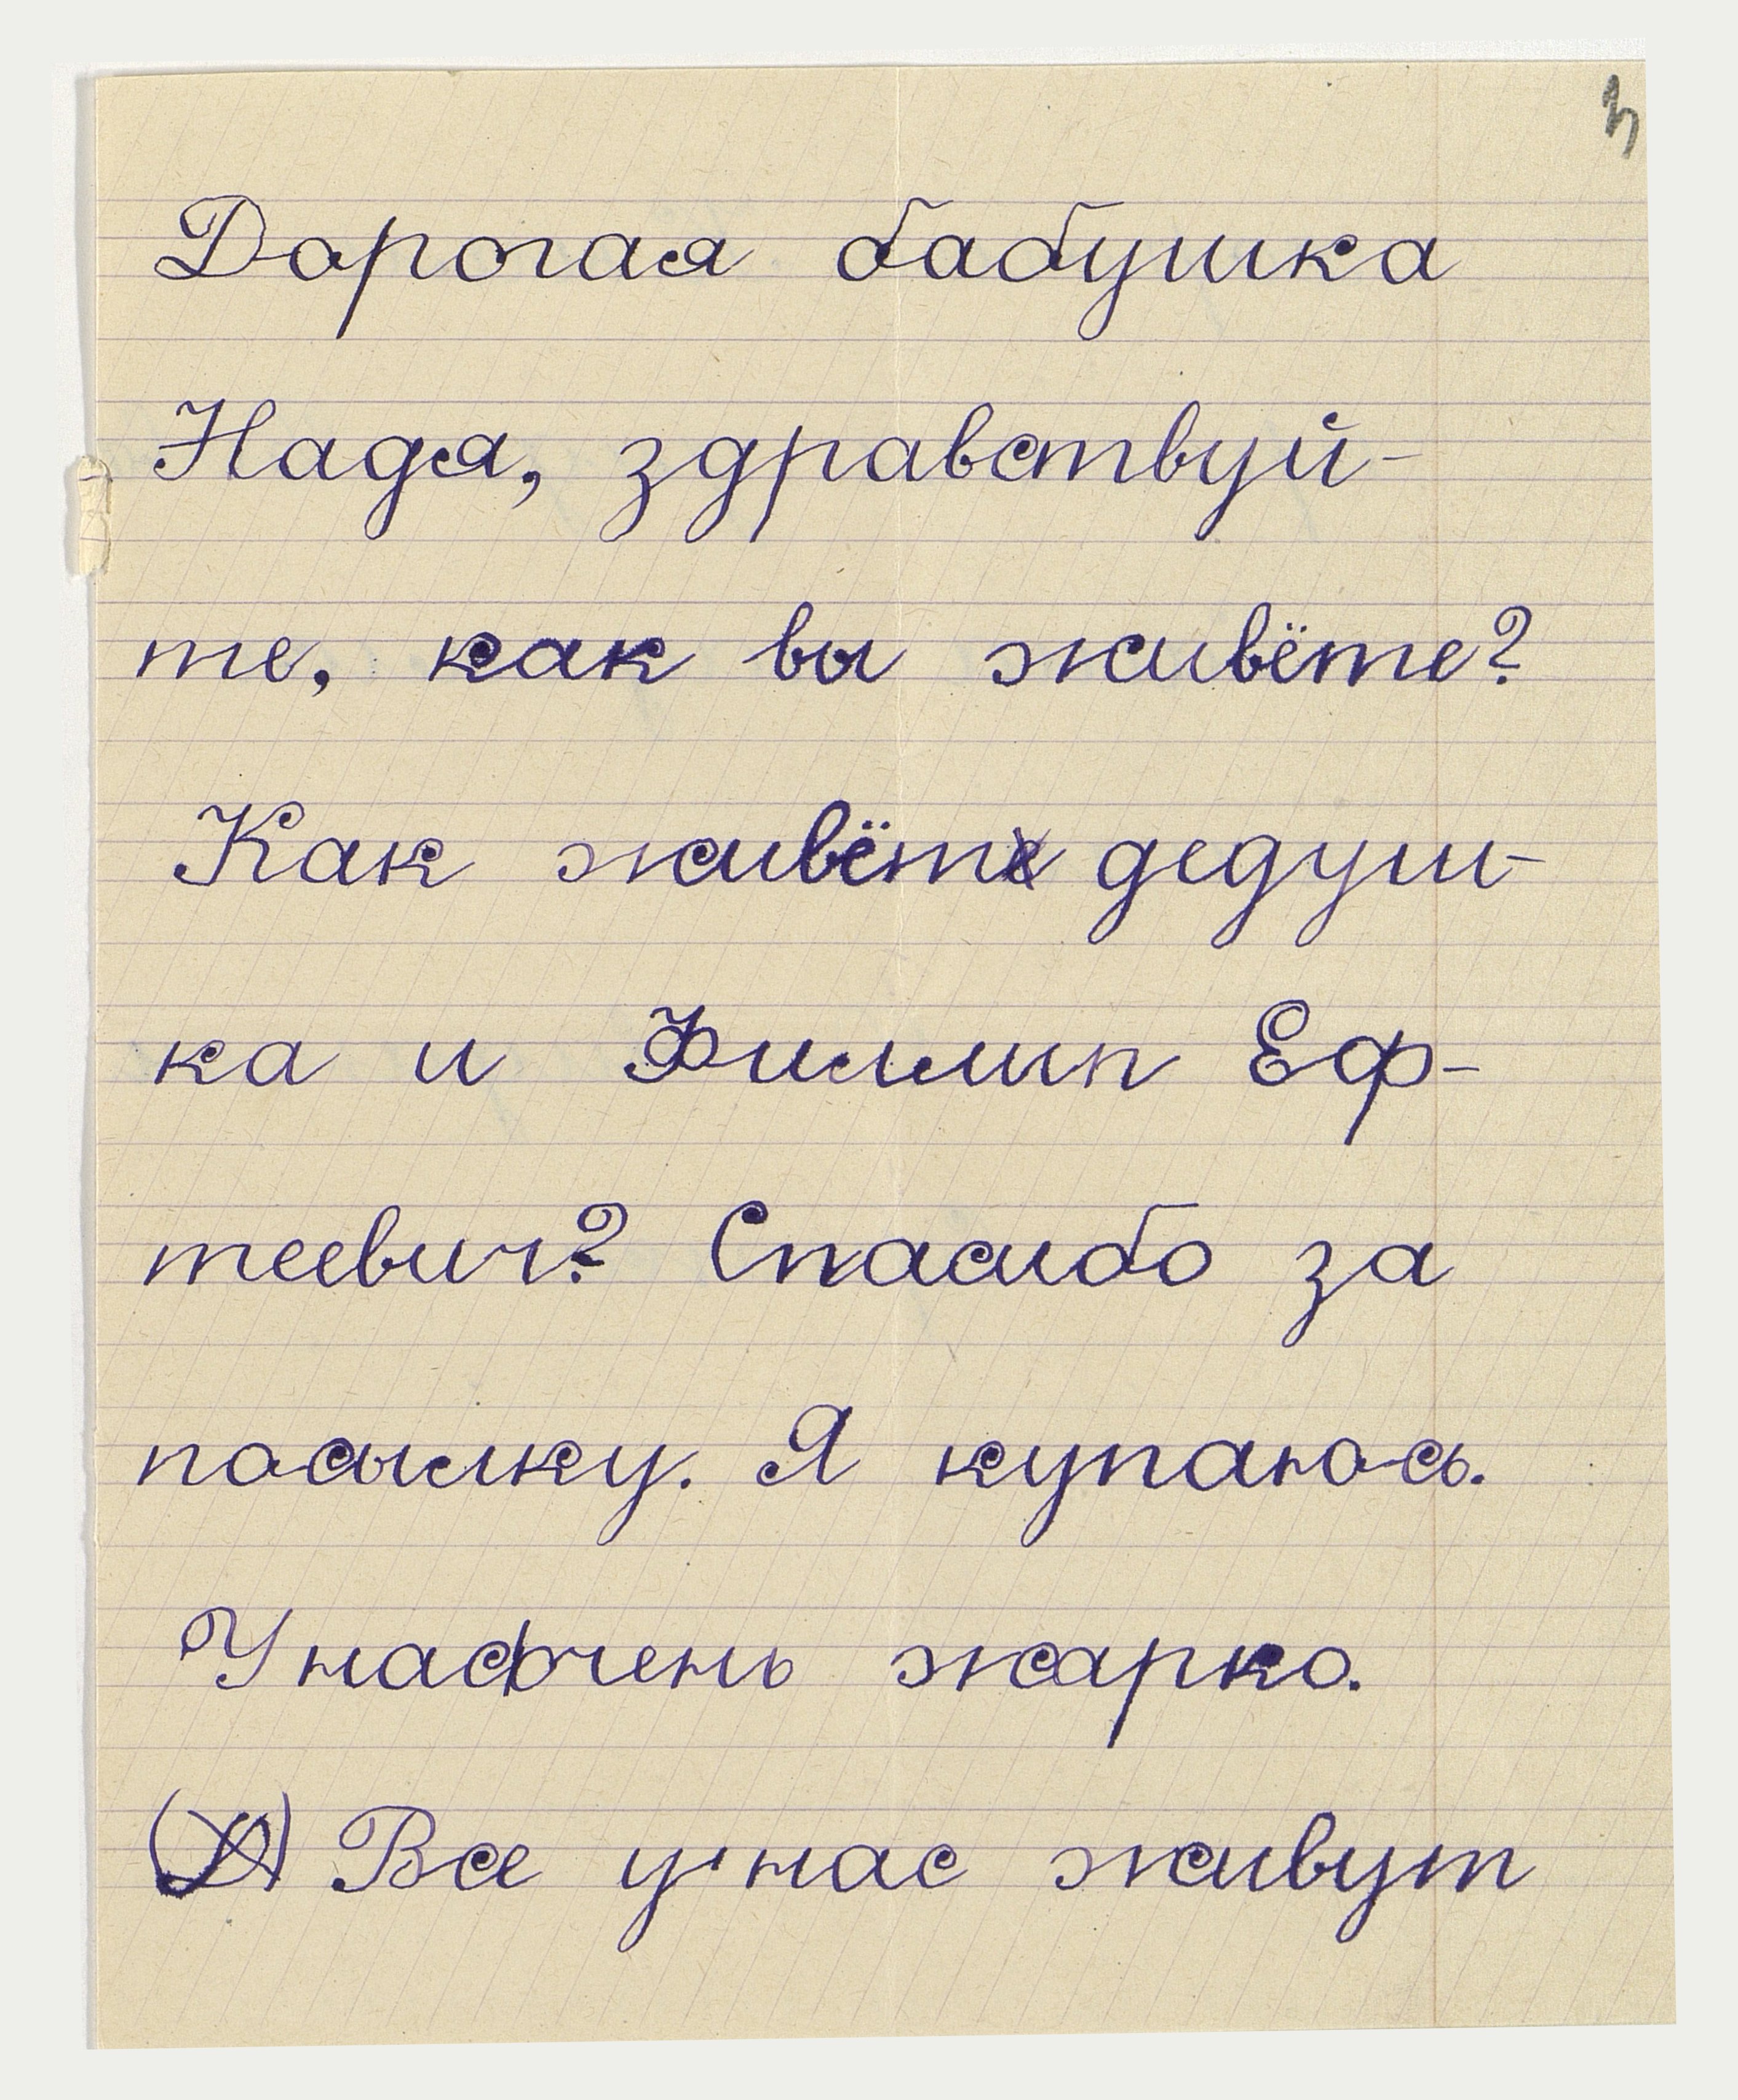 3
Дорогая бабушка
Надя, здравствуй-
те, как вы живёте?
Как живёт дедуш-
ка и Филлип Еф-
теевич? Спасибо за
посылку. Я купаюсь.
У нас очень жарко.
Все у нас живут